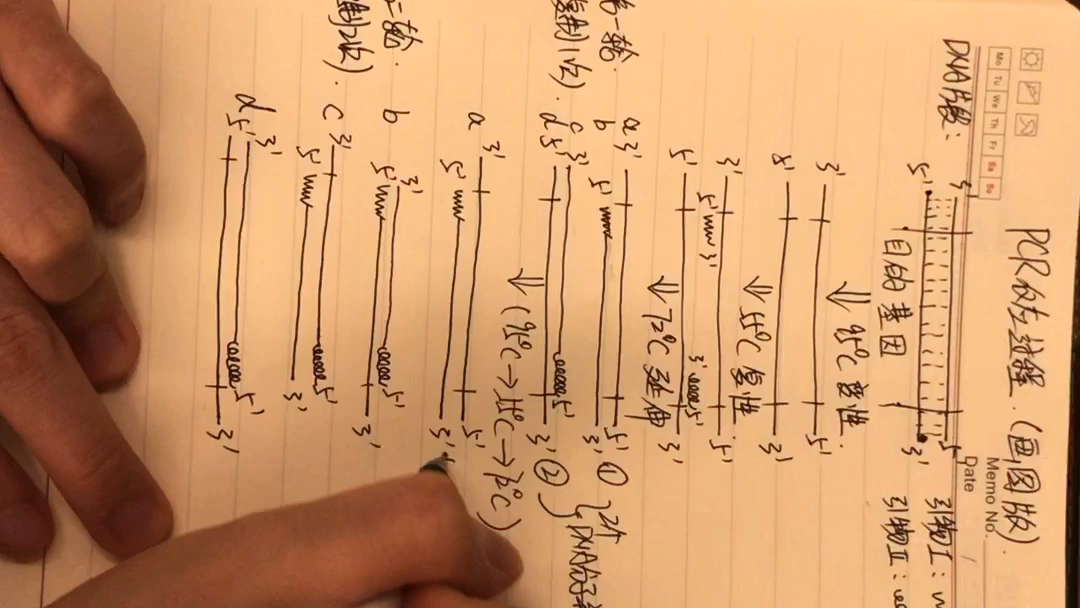 Memo No.
Date /
Mo Tu We Th Fr Sa Su
PCR反应过程.(画图版).
DNA片段:
3' 5'
5' 3'
目的基因
引物I:
引物II:
⇓ 95°C 变性.
3' 5'
5' 3'
⇓ 55°C 复性
3' 5'
5' 3'
3' 5'
5' 3'
⇓ 72°C 延伸
第一轮.
复制1次).
a 3' 5' ①
b 5' 3'
c 3' 5' ②
d 5' 3'
2个
DNA分子
⇓ (95°C→55°C→72°C)
二轮.
制2次).
a 3' 5'
5' 3'
b 3' 5'
5' 3'
c 3' 5'
5' 3'
d 3' 5'
5' 3'